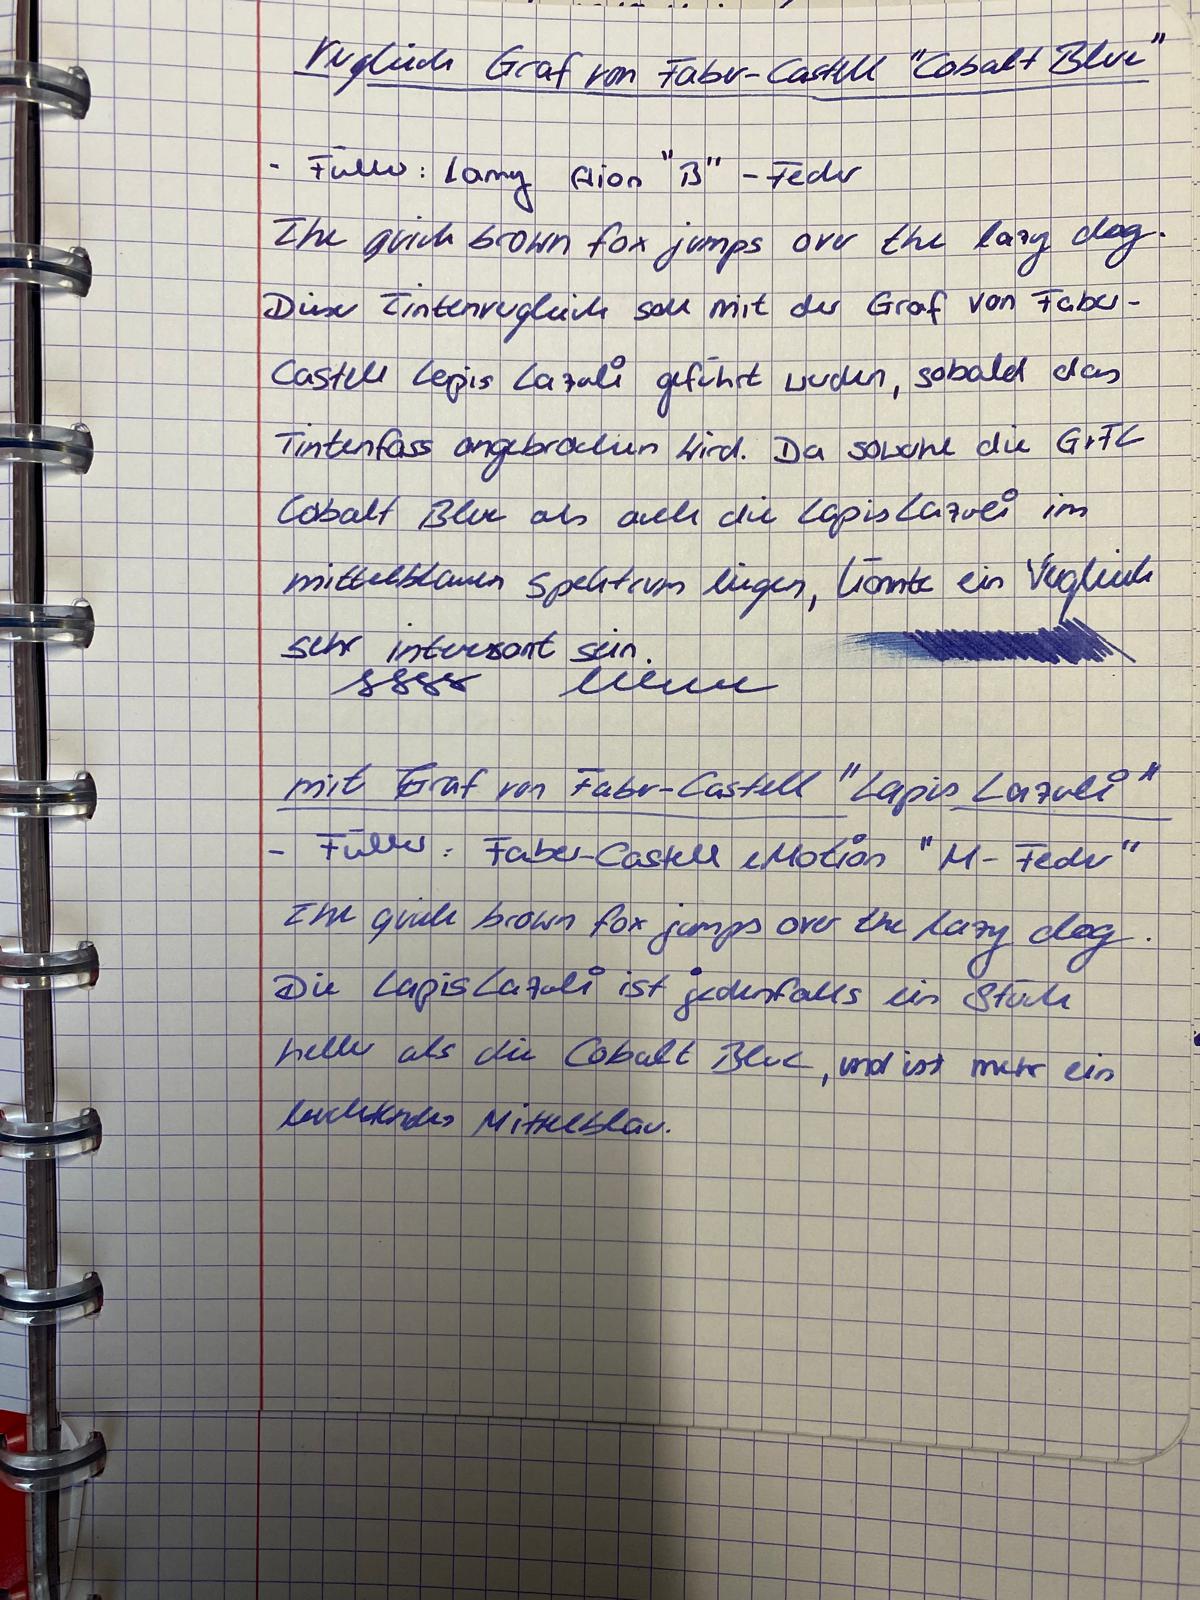 Vergleich Graf von Faber-Castell "Cobalt Blue"
- Füller: Lamy Aion "B" - Feder
The quick brown fox jumps over the lazy dog.
Dieser Tintenvergleich soll mit der Graf von Faber-
Castell Lapis Lazuli geführt werden, sobald das
Tintenfass angebrochen wird. Da sowohl die GvFC
Cobalt Blue als auch die Lapis Lazuli im
mittelblauen Spektrum liegen, könnte ein Vergleich
sehr interessant sein.
mit Graf von Faber-Castell "Lapis Lazuli"
- Füller: Faber-Castell eMotion "M- Feder"
The quick brown fox jumps over the lazy dog.
Die Lapis Lazuli ist jedenfalls ein Stück
heller als die Cobalt Blue, und ist mehr ein
leuchtendes Mittelblau.